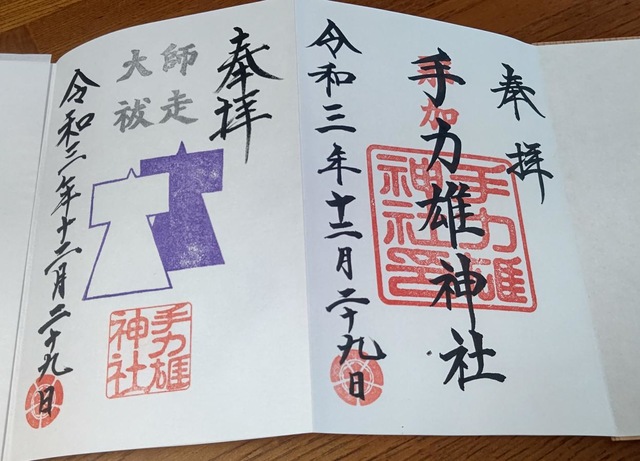 奉拝
手力雄神社
手力雄
神社印
令和三年十二月二十九日
奉拝
師走
大祓
手力雄
神社
令和三年十二月二十九日